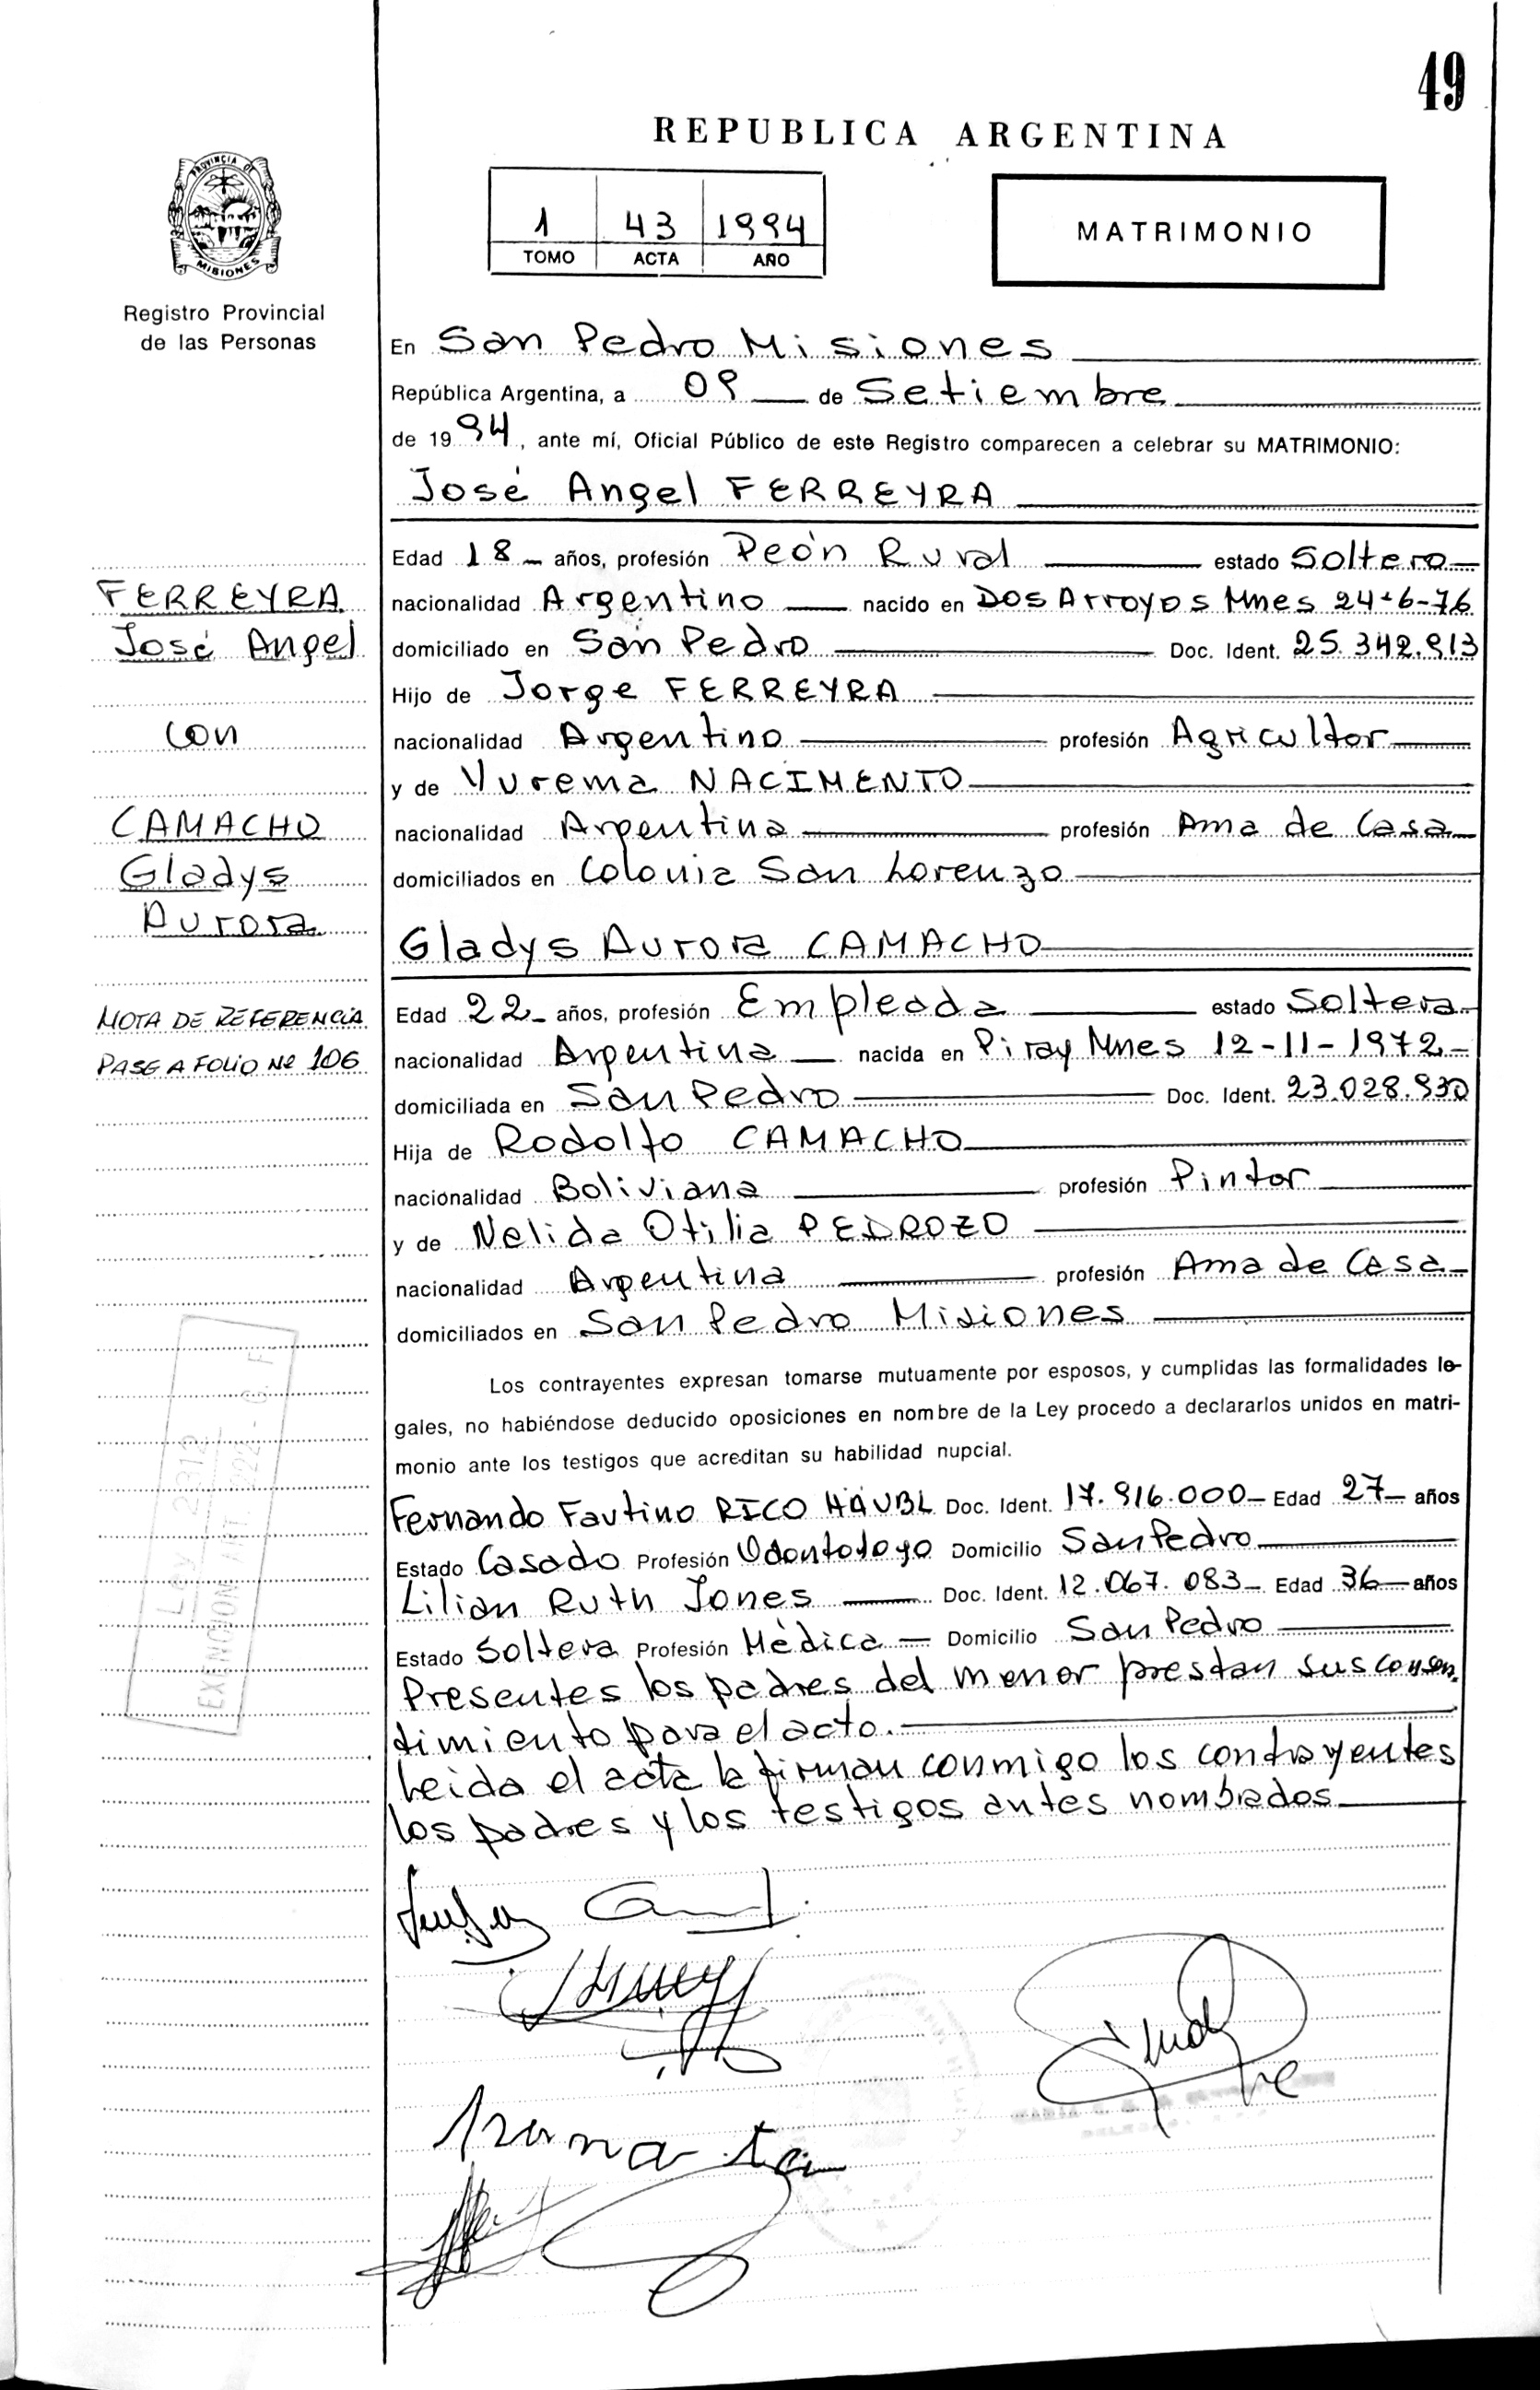 49
REPUBLICA ARGENTINA
PROVINCIA DE
MISIONES
Registro Provincial
de las Personas
1 43 1994
TOMO ACTA AÑO
MATRIMONIO
En San Pedro Misiones
República Argentina, a 09 de Setiembre
de 1994, ante mí, Oficial Público de este Registro comparecen a celebrar su MATRIMONIO:
José Angel FERREYRA
Edad 18 años, profesión Peón Rural estado Soltero
nacionalidad Argentino nacido en Dos Arroyos Mnes 24-6-76
domiciliado en San Pedro Doc. Ident. 25.342.913
Hijo de Jorge FERREYRA
nacionalidad Argentino profesión Agricultor
y de Yurema NACIMENTO
nacionalidad Argentina profesión Ama de Casa
domiciliados en Colonia San Lorenzo
Gladys Aurora CAMACHO
Edad 22 años, profesión Empleada estado Soltera
nacionalidad Argentina nacida en Piray Mnes 12-11-1972
domiciliada en San Pedro Doc. Ident. 23.028.930
Hija de Rodolfo CAMACHO
nacionalidad Boliviana profesión Pintor
y de Nelida Otilia PEDROZO
nacionalidad Argentina profesión Ama de Casa
domiciliados en San Pedro Misiones
Los contrayentes expresan tomarse mutuamente por esposos, y cumplidas las formalidades le-
gales, no habiéndose deducido oposiciones en nombre de la Ley procedo a declararlos unidos en matri-
monio ante los testigos que acreditan su habilidad nupcial.
Fernando Fautino RICO HAUBL Doc. Ident. 17.916.000 Edad 27 años
Estado Casado Profesión Odontologo Domicilio San Pedro
Lilian Ruth Jones Doc. Ident. 12.067.083 Edad 36 años
Estado Soltera Profesión Médica Domicilio San Pedro
Presentes los padres del menor prestan sus consen
timiento para el acto.
Leida el acta la firman conmigo los contrayentes
los padres y los testigos antes nombrados
FERREYRA
José Angel
con
CAMACHO
Gladys
Aurora
NOTA DE REFERENCIA
PASE A FOLIO Nº 106
Ley 2312
EXENCION ART. 222 - C. F.